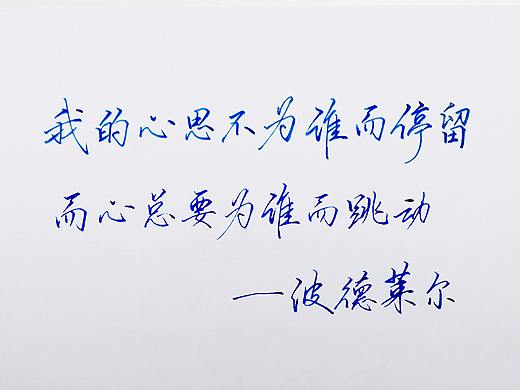 我的心思不为谁而停留
而心总要为谁而跳动
—波德莱尔